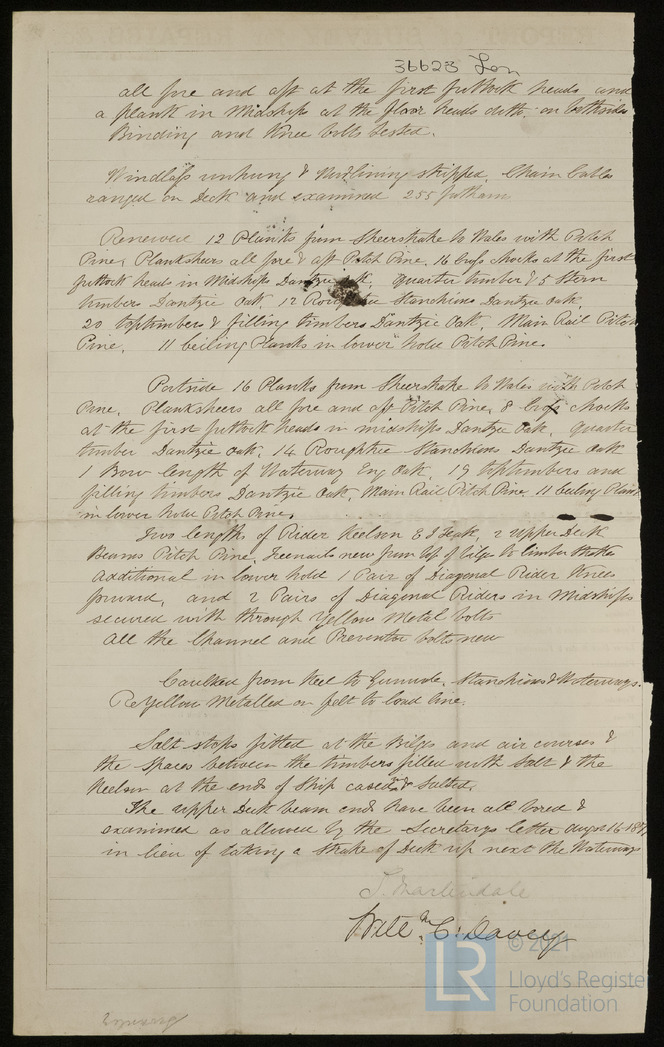 36623 Lon
all fore and aft at the first futtock heads and
a plank in Midships at the floor heads ditto on bothsides
Binding and Knee bolts tested.
Windlass unhung & stripped. Chain Cables
ranged on Deck and examined 255 fathoms
Renewed 12 Planks from Sheerstrake to Wales with Pitch
Pine, Planksheers all fore & aft Pitch Pine, 16 Cross Chocks at the first
futtock heads in Midships Dantzic Oak, quarter timber & 5 Stern
timbers Dantzic Oak 12 Roughtree Stanchions Dantzic Oak,
20 toptimbers & filling timbers Dantzic Oak, Main Rail Pitch
Pine, 11 ceiling Planks in lower hold Pitch Pine.
Portside 16 Planks from Sheerstrake to Wales with Pitch
Pine, Planksheers all fore and aft Pitch Pine, 8 Cross Chocks
at the first futtock heads in midships Dantzic Oak, quarter
timber Dantzic Oak, 14 Roughtree Stanchions Dantzic Oak
1 Bow length of Waterway Eng Oak, 19 toptimbers and
filling timbers Dantzic Oak, Main Rail Pitch Pine, 11 ceiling Plank
in lower hold Pitch Pine,
Two lengths of Rider Keelson E I Teak, 2 upper Deck
Beams Pitch Pine, Treenails new from Up of bilge to limber strake
additional in lower hold 1 Pair of Diagonal Rider Knees
forward, and 2 Pairs of Diagonal Riders in Midships
secured with through Yellow Metal bolts
All the Channel and Preventor bolts new
Caulked from Keel to Gunwale, Stanchions & Waterways.
ReYellow Metalled on felt to load line.
Salt stops fitted at the Bilges and air courses &
the spaces between the timbers filled with Salt & the
Keelson at the ends of Ship cased & Salted.
The upper Deck beam ends have been all bored &
examined as allowed by the Secretarys letter augst 16
in lieu of taking a Strake of Deck up next the Waterways
J. Martindale
Wm C. Davey
© 2021
LR
Lloyd's Register
Foundation